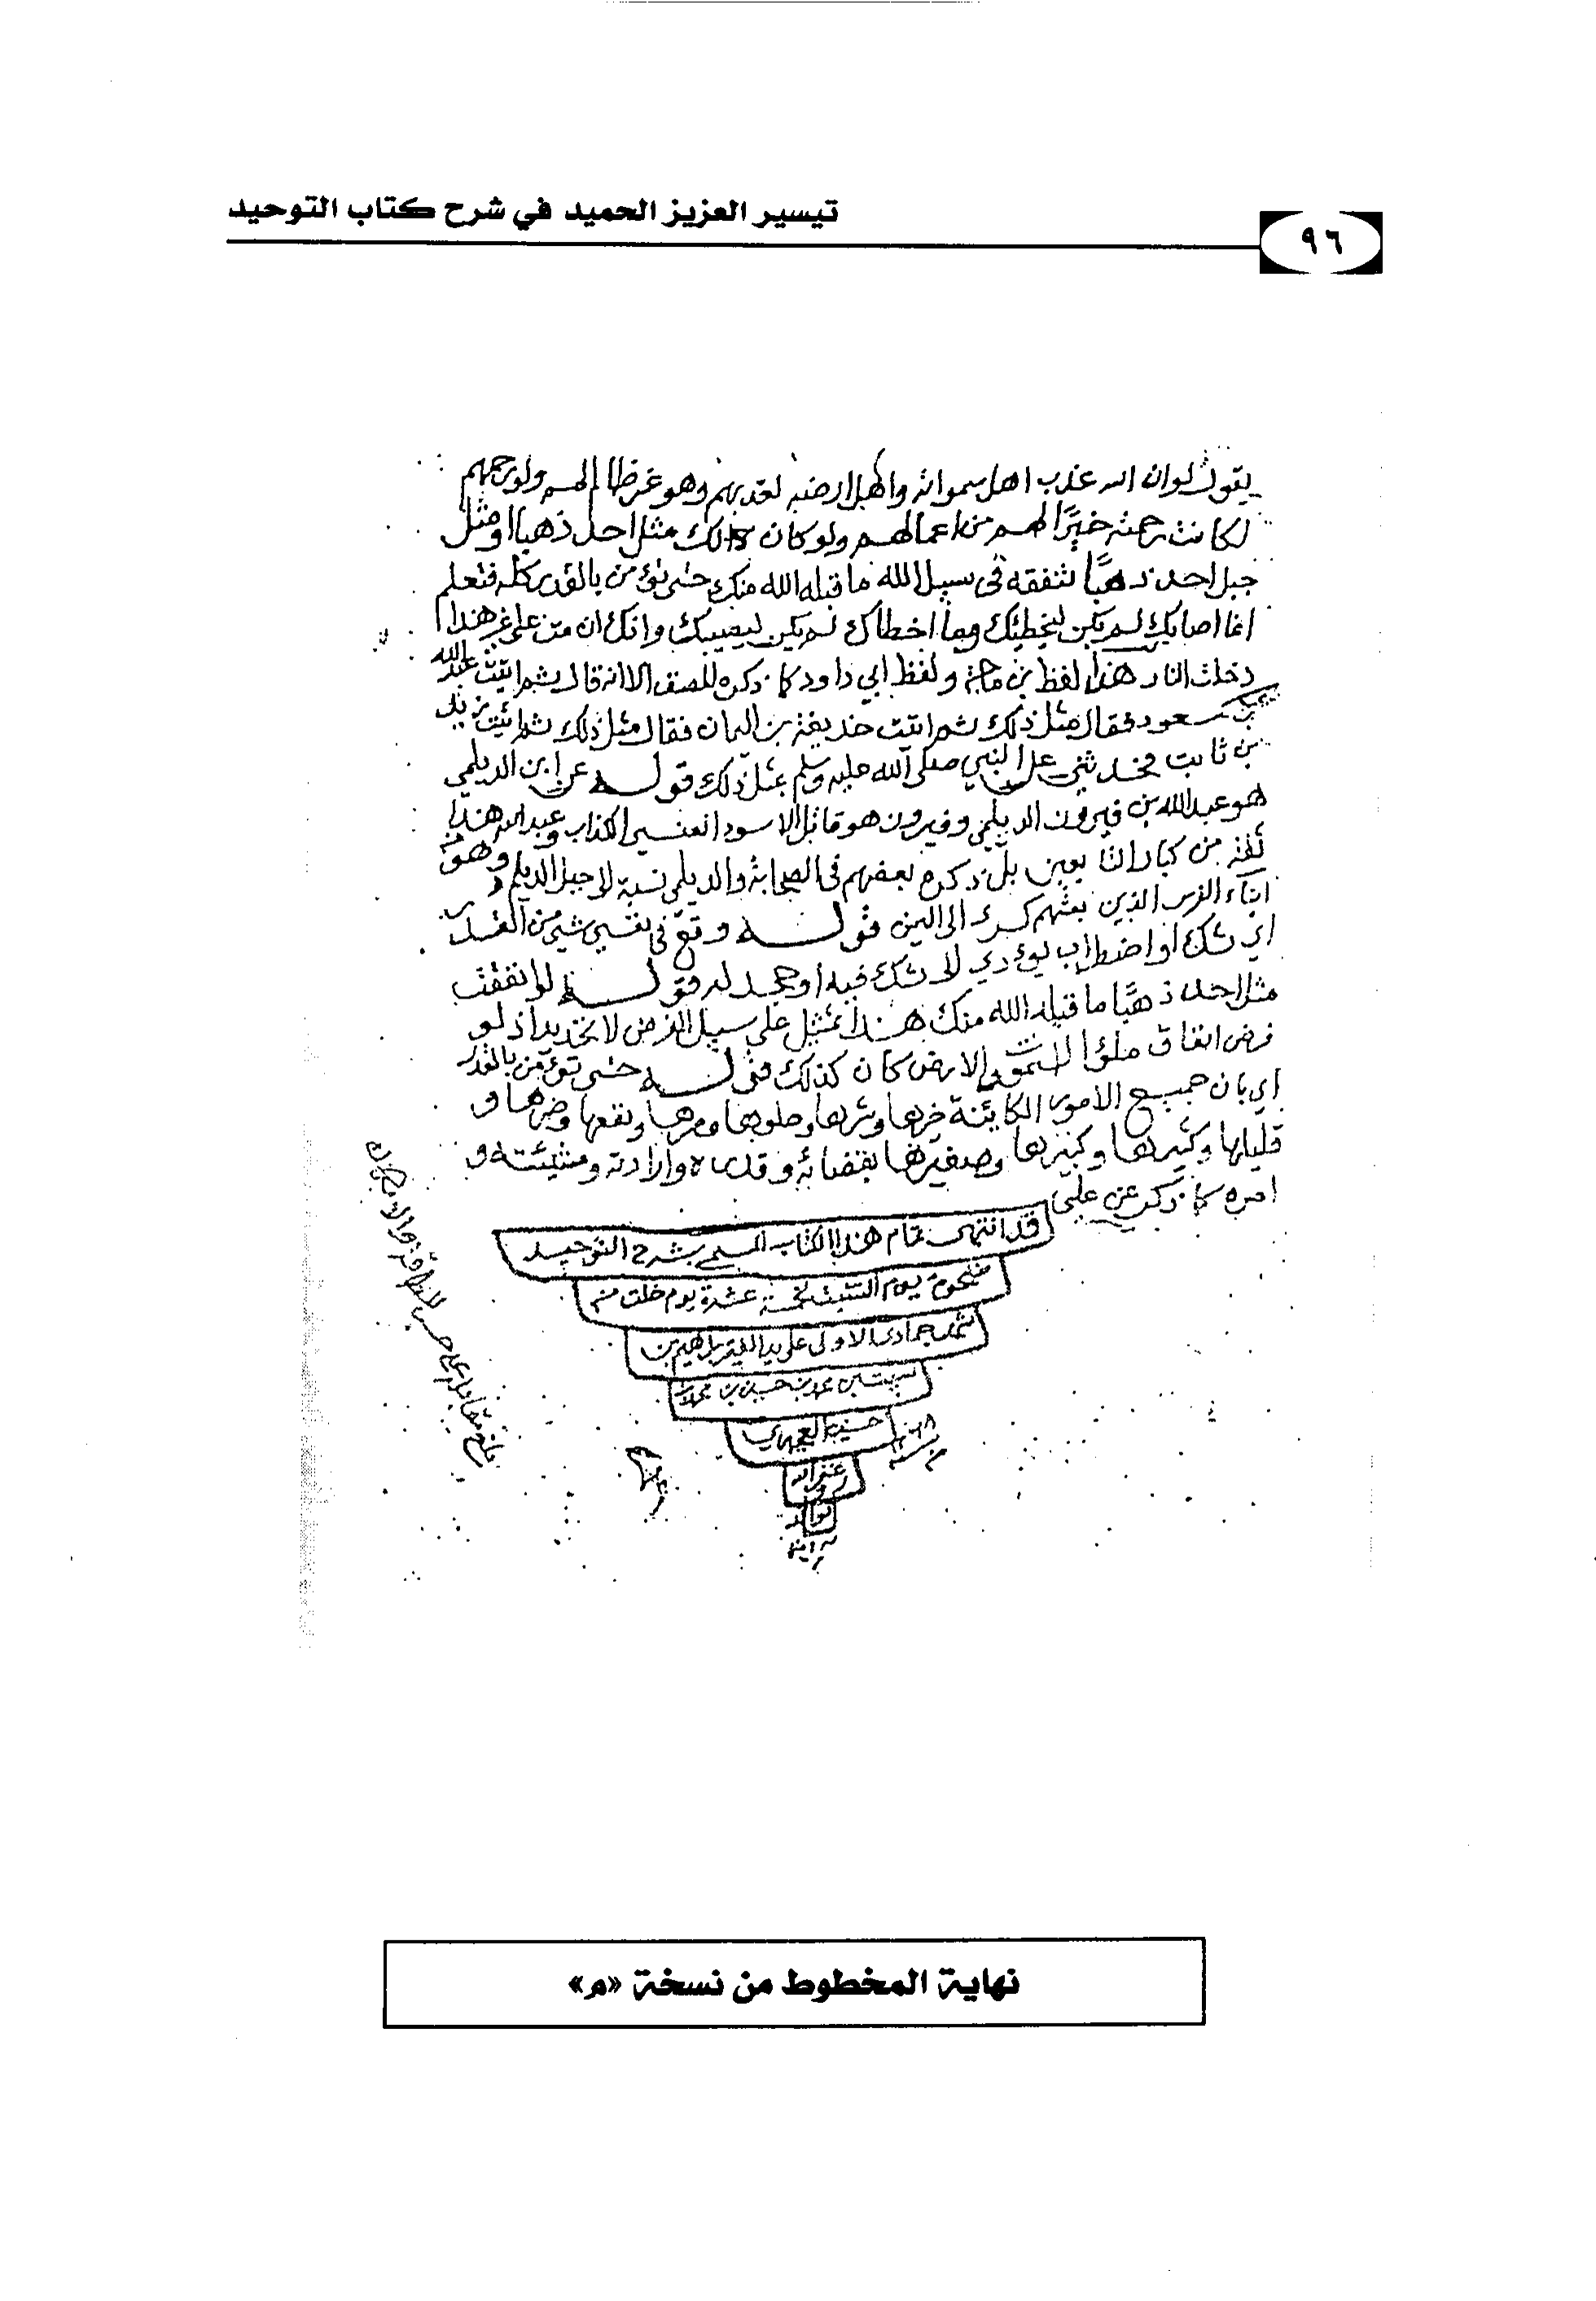 تيسير العزيز الحميد في شرح كتاب التوحيد
٩٦
يقول لوان الله عذب اهل سمواته واهل ارضه لعذبهم وهو غير ظالم لهم ولو رحمهم
لكانت رحمته خيرًا لهم من اعمالهم ولو كان لك مثل احد ذهبا او مثل
جبل احد ذهبًا تنفقه في سبيل الله ما قبله الله منك حتى تؤمن بالقدر كله فتعلم
انما اصابك لم يكن ليخطئك وما اخطاك لم يكن ليصيبك وانك ان مت على غير هذا
دخلت النار هذا لفظ بن ماجة ولفظ ابي داود كما ذكره المصنف الا انه قال ثم اتيت عبد الله
بن مسعود فقال مثل ذلك ثم اتيت حذيفة بن اليمان فقال مثل ذلك ثم اتيت زيد
بن ثابت فحدثني عن النبي صلى الله عليه وسلم بمثل ذلك قوله عن ابن الديلمي
هو عبد الله بن فيروز الديلمي وفيروز هو قاتل الاسود العنسي الكذاب وعبد الله هذا
ثقة من كبار التابعين بل ذكره بعضهم في الصحابة والديلمي نسبة الى جبل الديلم وهو من
ابناء الفرس الذين بعثهم كسرى الى اليمن قوله وقع في نفسي شيء من القدر
اي شك او اضطراب يؤدي الى شك فيه او جحد له قوله لو انفقت
مثل احد ذهبًا ما قبله الله منك هذا تمثيل على سبيل الفرض لا تحديد اذ لو
فرض انفاق ملؤ السموات والارض كان كذلك قوله حتى تؤمن بالقدر
اي بان جميع الامور الكائنة خيرها وشرها وحلوها ومرها ونفعها وضرها و
قليلها وكثيرها وكبيرها وصغيرها بقضائه وقدره وارادته ومشيئته و
امره كما ذكر عن علي
قد انتهى تمام هذا الكتاب المسمى بشرح التوحيد
ضحوة يوم السبت لخمسة عشرة يوم خلت من
شهر جمادى الاولى على يد الفقير ابراهيم بن
محمد بن حسين بن
غفر الله
بلغ مقابلة على حسب الطاقة والامكان
نهاية المخطوط من نسخة «م»